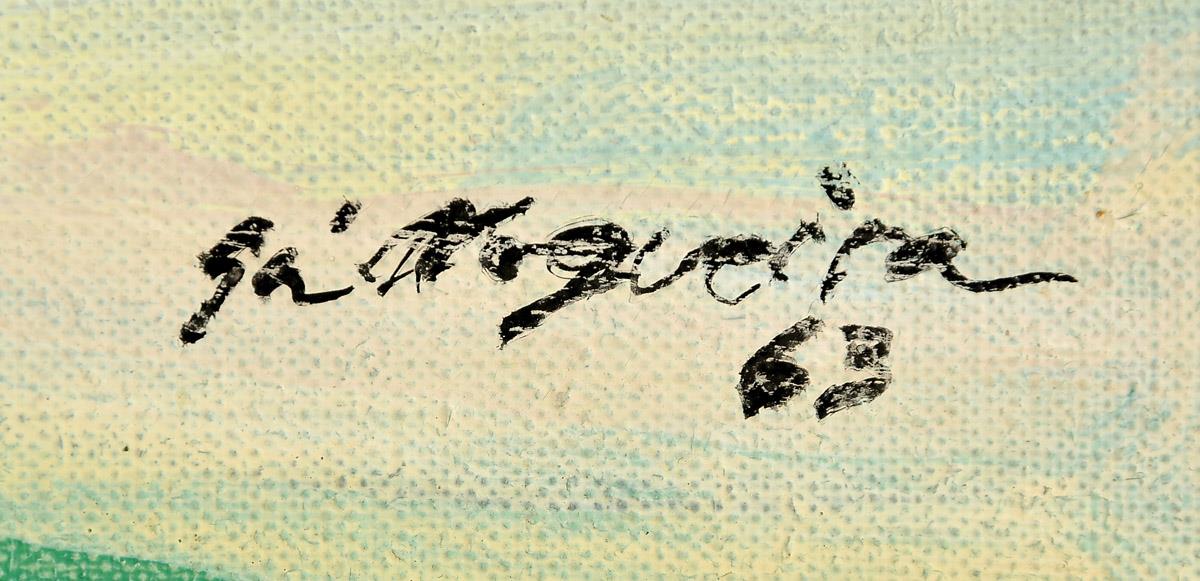 Nogueira
63